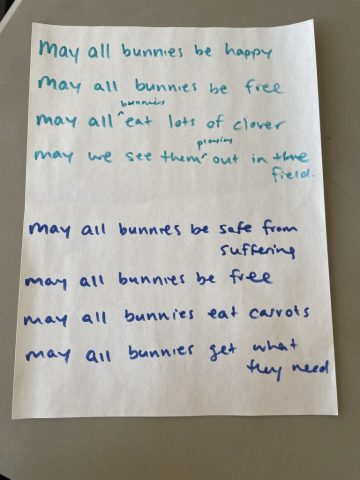 May all bunnies be happy
may all bunnies be free
bunnies
may all ^ eat lots of clover
playing
may we see them ^ out in the
field.
May all bunnies be safe from
suffering
may all bunnies be free
may all bunnies eat carrots
may all bunnies get what
they need